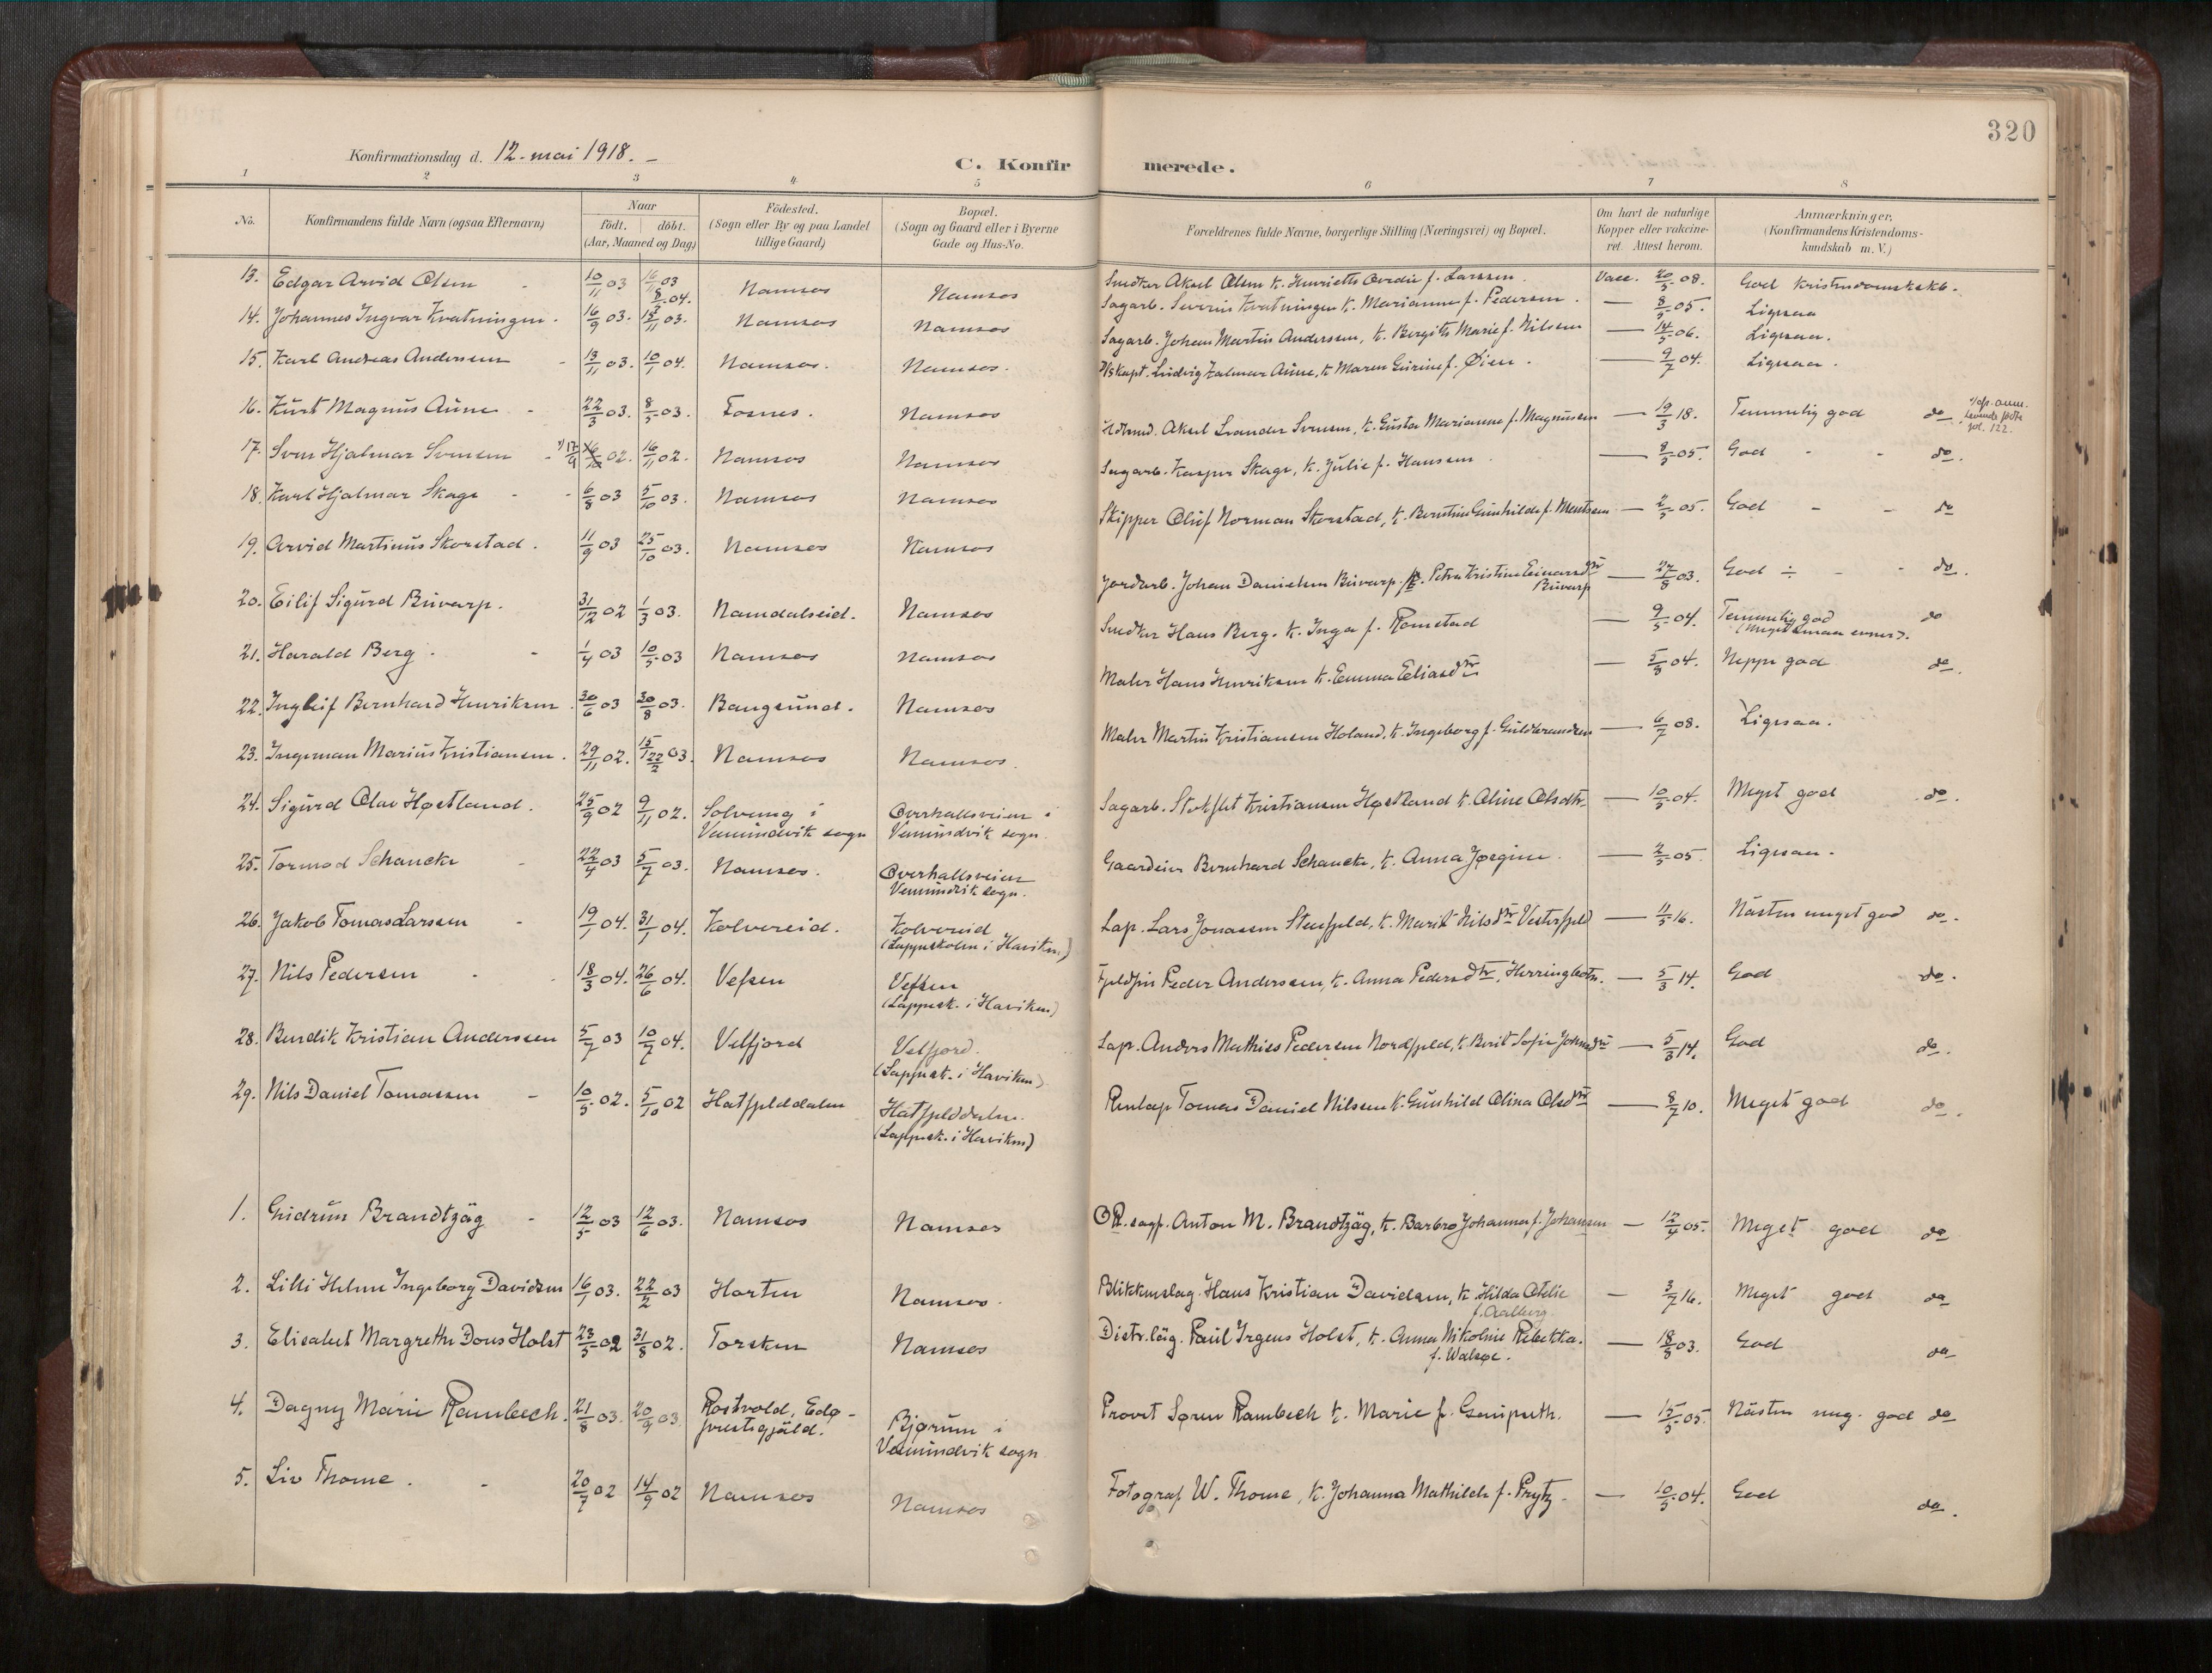 320
Konfirmationsdag d. 12. mai 1918. –
C. Konfirmerede.
1 2 3 4 5 6 7 8
No.
Konfirmandens fulde Navn (ogsaa Efternavn)
Naar
födt. döbt.
(Aar, Maaned og Dag)
Födested.
(Sogn eller By og paa Landet
tillige Gaard)
Bopæl.
(Sogn og Gaard eller i Byerne
Gade og Hus-No.
Forældrenes fulde Navne, borgerlige Stilling (Næringsvei) og Bopæl.
Om havt de naturlige
Kopper eller vaccine-
ret. Attest herom.
Anmærkninger.
(Konfirmandens Kristendoms-
kundskab m. V.)
13. Edgar Arvid Olsen 10/11 03 Namsos Namsos Snedker Aksel Olsen k. Henriette f. Larssen. Vacc. 20/5 08. God kristendomskskb.
14. Johannes Ingvar Kvatningen. 16/9 03. Namsos Namsos Sagarb. Severin Kvatningen k. Marianne f. Pedersen. — 8/5 05. Ligesaa
15. Karl Andreas Anderssen 13/11 03. 10/1 04. Namsos. Namsos. Sagarb. Johan Martin Anderssen, k. Bergitte Marie f. Nilssen — 14/5 06. Ligesaa.
16. Kurt Magnus Aune 22/3 03. 8/5 03. Fosnes. Namsos D/skapt. Ludvig Halmar Aune, k. Maren Gurine f. Øien. — 9/7 04. Ligesaa.
17. Sven Hjalmar Svensen 17/9 02. 16/11 02. Namsos Namsos Aksel Leander Svensen, k. Gusta Marianne f. Magnussen — 19/3 18. Temmelig god do
levende födte
fol. 122.
18. Karl Hjalmar Skage 6/8 03 5/10 03. Namsos Namsos Sagarb. Kasper Skage, k. Julie f. Hanssen — 8/5 05. God do.
19. Arvid Martinus Skorstad. 11/9 03 25/10 03. Namsos Namsos Skipper Oluf Norman Skorstad, k. Berntine Gunhilde f. Mentsen — 2/5 05. God do
20. Eilif Sigurd Buvarp. 31/12 02 1/3 03. Namdalseid. Namsos Jordarb. Johan Danielsen Buvarp. k. Petra Kristine Einarsdtr
Buvarp — 27/8 03. God ÷ do.
21. Harald Berg. 1/4 03 10/5 03 Namsos Namsos Snedker Hans Berg. k. Inga f. Romstad — 9/5 04. Temmelig god do
(Meget smaa evner).
22. Ingleif Bernhard Henriksen 30/6 03 30/8 03. Bangsund. Namsos Maler Hans Henriksen k. Emma Eliasdtr — 5/8 04. Neppe god do.
23. Ingeman Marius Kristiansen. 29/11 02. 22/2 03. Namsos Namsos. Maler Martin Kristiansen Holand, k. Ingeborg f. Guldbrandsen — 6/7 08. Ligesaa.
24. Sigurd Olav Høstland. 25/9 02 9/11 02. Solvang i
Vemundvik sogn Overhallsveien i
Vemundvik sogn. Sagarb. Kristiansen Høstland k. Oline Olsdtr. — 10/5 04. Meget god do.
25. Tormod Schancke 22/4 03 5/7 03. Namsos. Overhallsveien
Vemundvik sogn. Gaardeier Bernhard Schancke, k. Anna Jørgine. — 2/5 05. Ligesaa.
26. Jakob Tomas Larssen 19/1 04. 31/1 04. Kolvereid. Kolvereid
(Lappeskolen i Haviken) Lap. Lars Jonassen Stenfjeld, k. Marit Nilsdtr Vesterfjeld — 11/5 16. Nästen meget god do.
27. Nils Pedersen 18/3 04. 26/6 04. Vefsen Vefsen
(Lappesk. i Haviken) Fjeldfin Peder Anderssen, k. Anna Pedersdtr, Herringbotn. — 5/3 14. God do.
28. Bendik Kristian Anderssen 5/7 03 10/7 04. Velfjord Velfjord.
(Lappesk. i Haviken) Lap. Anders Mathias Pedersen Nordfjeld, k. Berit Sofie Johnsdtr — 5/3 14. God do.
29. Nils Daniel Tomassen 10/5 02. 5/10 02 Hatfjelddalen Hatfjelddalen.
(Lappesk. i Haviken) Renlap Tomas Daniel Nilssen k. Gunhild Olina Olsdtr — 8/7 10. Meget god do.
1. Gudrun Brandtzäg 12/5 03 12/6 03. Namsos Namsos O.R.sagf. Anton M. Brandtzäg, k. Barbro Johanna f. Johansen — 12/4 05. Meget god do
2. Lilli Helene Ingeborg Davidsen 16/1 03. 22/2 03 Horten Namsos. Blikkenslag. Hans Kristian Davidsen, k. Hilda Otelie
f. Aalberg. — 3/7 16. Meget god do
3. Elisabet Margrethe Dons Holst 23/5 02 31/8 02. Torsken Namsos Distr.läg. Paul Irgens Holst, k. Anna Nikoline Rebekka.
f. Walsøe. — 18/8 03. God do
4. Dagny Marie Rambech. 21/8 03. 20/9 03. Rostvold, Edø-
prestegjäld. Bjørum i
Vemundvik sogn Provst Søren Rambech k. Marie f. — 15/5 05. Nästen meg. god do
5. Liv Thome. 20/7 02 14/9 02 Namsos Namsos Fotograf W. Thome, k. Johanna Mathilde f. Prytz. — 10/5 04. God do.